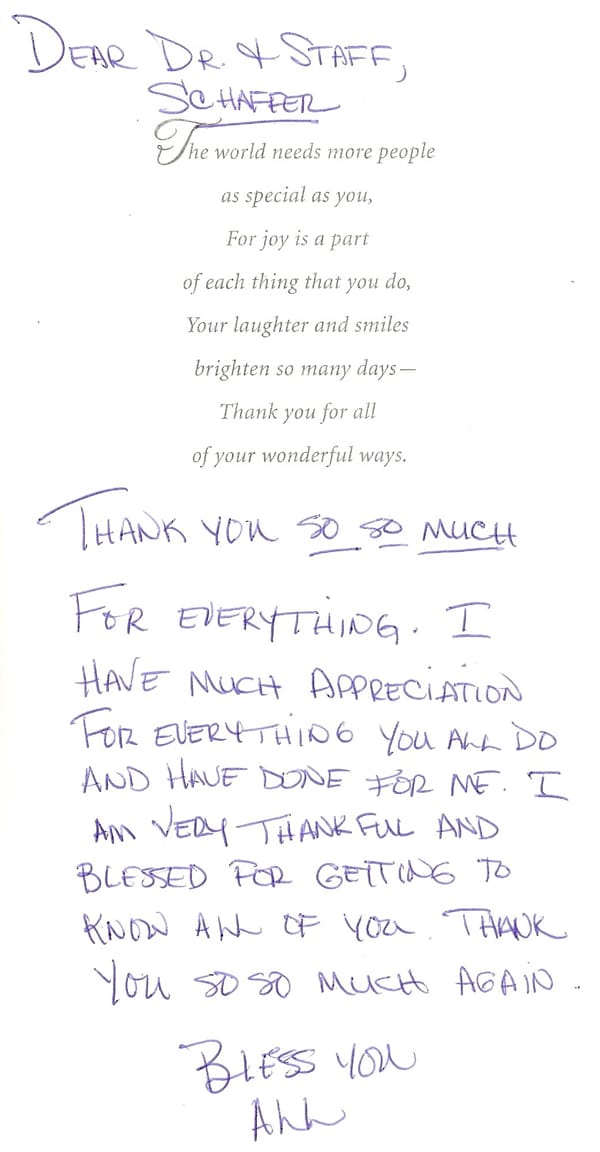 DEAR DR. & STAFF,
SCHAFFER
The world needs more people
as special as you,
For joy is a part
of each thing that you do,
Your laughter and smiles
brighten so many days—
Thank you for all
of your wonderful ways.
THANK YOU SO SO MUCH
FOR EVERYTHING. I
HAVE MUCH APPRECIATION
FOR EVERYTHING YOU ALL DO
AND HAVE DONE FOR ME. I
AM VERY THANKFUL AND
BLESSED FOR GETTING TO
KNOW ALL OF YOU. THANK
YOU SO SO MUCH AGAIN.
BLESS YOU
ALL